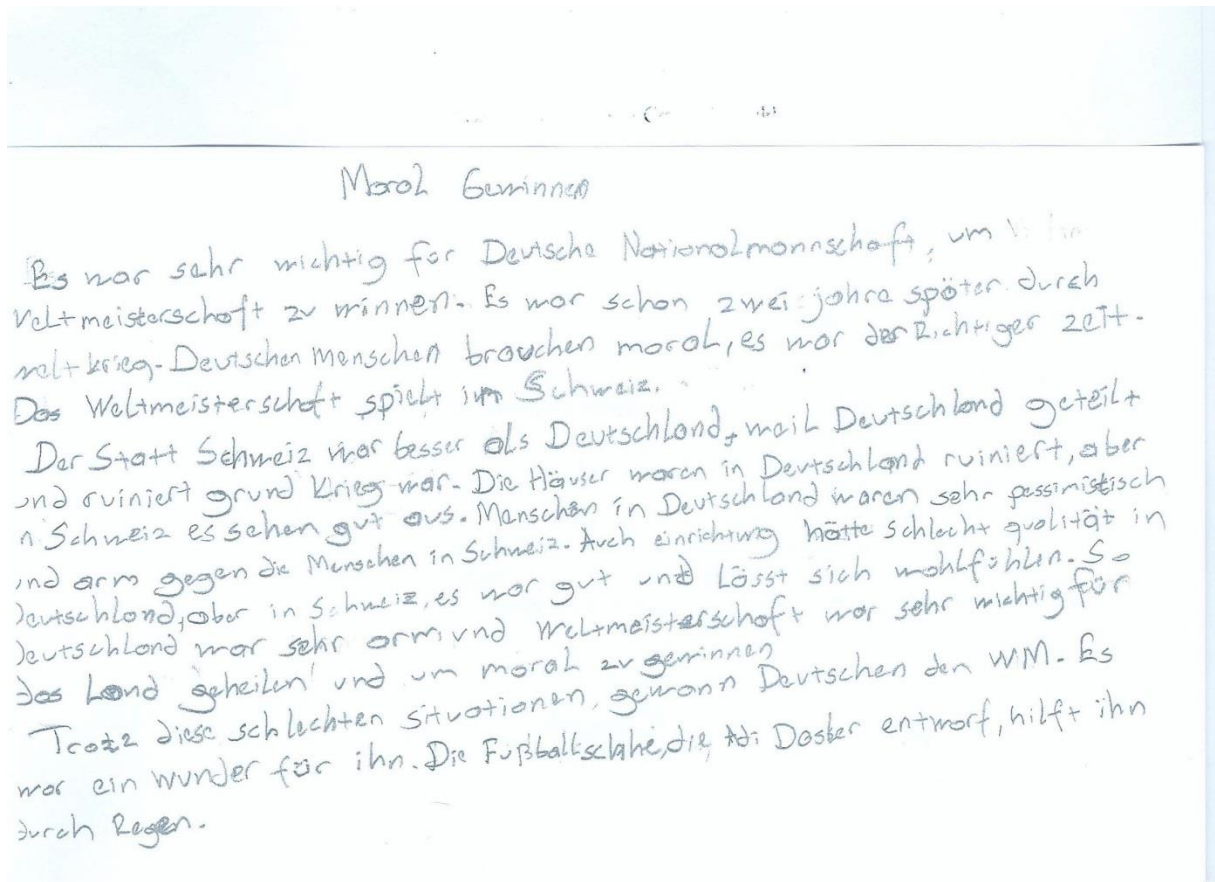 Moral Gewinnen
Es war sehr wichtig für Deutsche Nationalmannschaft, um
Veltmeisterschaft zu winnen. Es war schon zwei jahre später durch
welt krieg. Deutschen Menschen brauchen moral, es war der Richtiger zeit.
Das Weltmeisterschaft spielt im Schweiz.
Der Statt Schweiz war besser als Deutschland, weil Deutschland geteilt
und ruiniert grund Krieg war. Die Häuser waren in Deutschland ruiniert, aber
n Schweiz es sehen gut aus. Menschen in Deutschland waren sehr pessimistisch
und arm gegen die Menschen in Schweiz. Auch einrichtung hätte schlecht qualität in
Deutschland, aber in Schweiz, es war gut und Lässt sich wohlfühlen. So
Deutschland war sehr arm und Weltmeisterschaft war sehr wichtig für
das Land geheilen und um moral zu gewinnen
Trotz diese schlechten situationen, gewann Deutschen den WM. Es
war ein wunder für ihn. Die Fußballschhe, die Adi Dasler entwarf, hilft ihn
durch Regen.